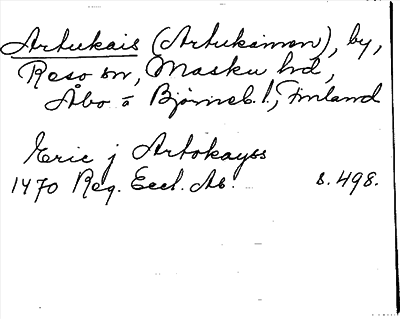 Artukais (Artukainen), by,
Reso sn, Masku hd,
Åbo o Björneb. l., Finland
Eric j Artokayss
1470 Reg. Eccl. Ab. s. 498.